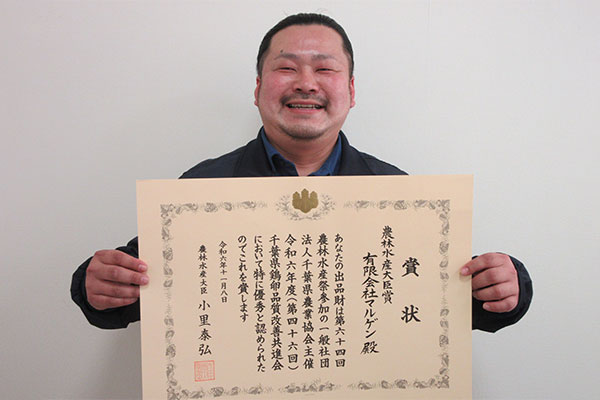 賞状
農林水産大臣賞
有限会社マルゲン殿
あなたの出品財は第六十四回
農林水産祭参加の一般社団
法人千葉県農業協会主催
令和六年度(第四十六回)
千葉県鶏卵品質改善共進会
において特に優秀と認められた
のでこれを賞します
令和六年十一月八日
農林水産大臣 小里泰弘